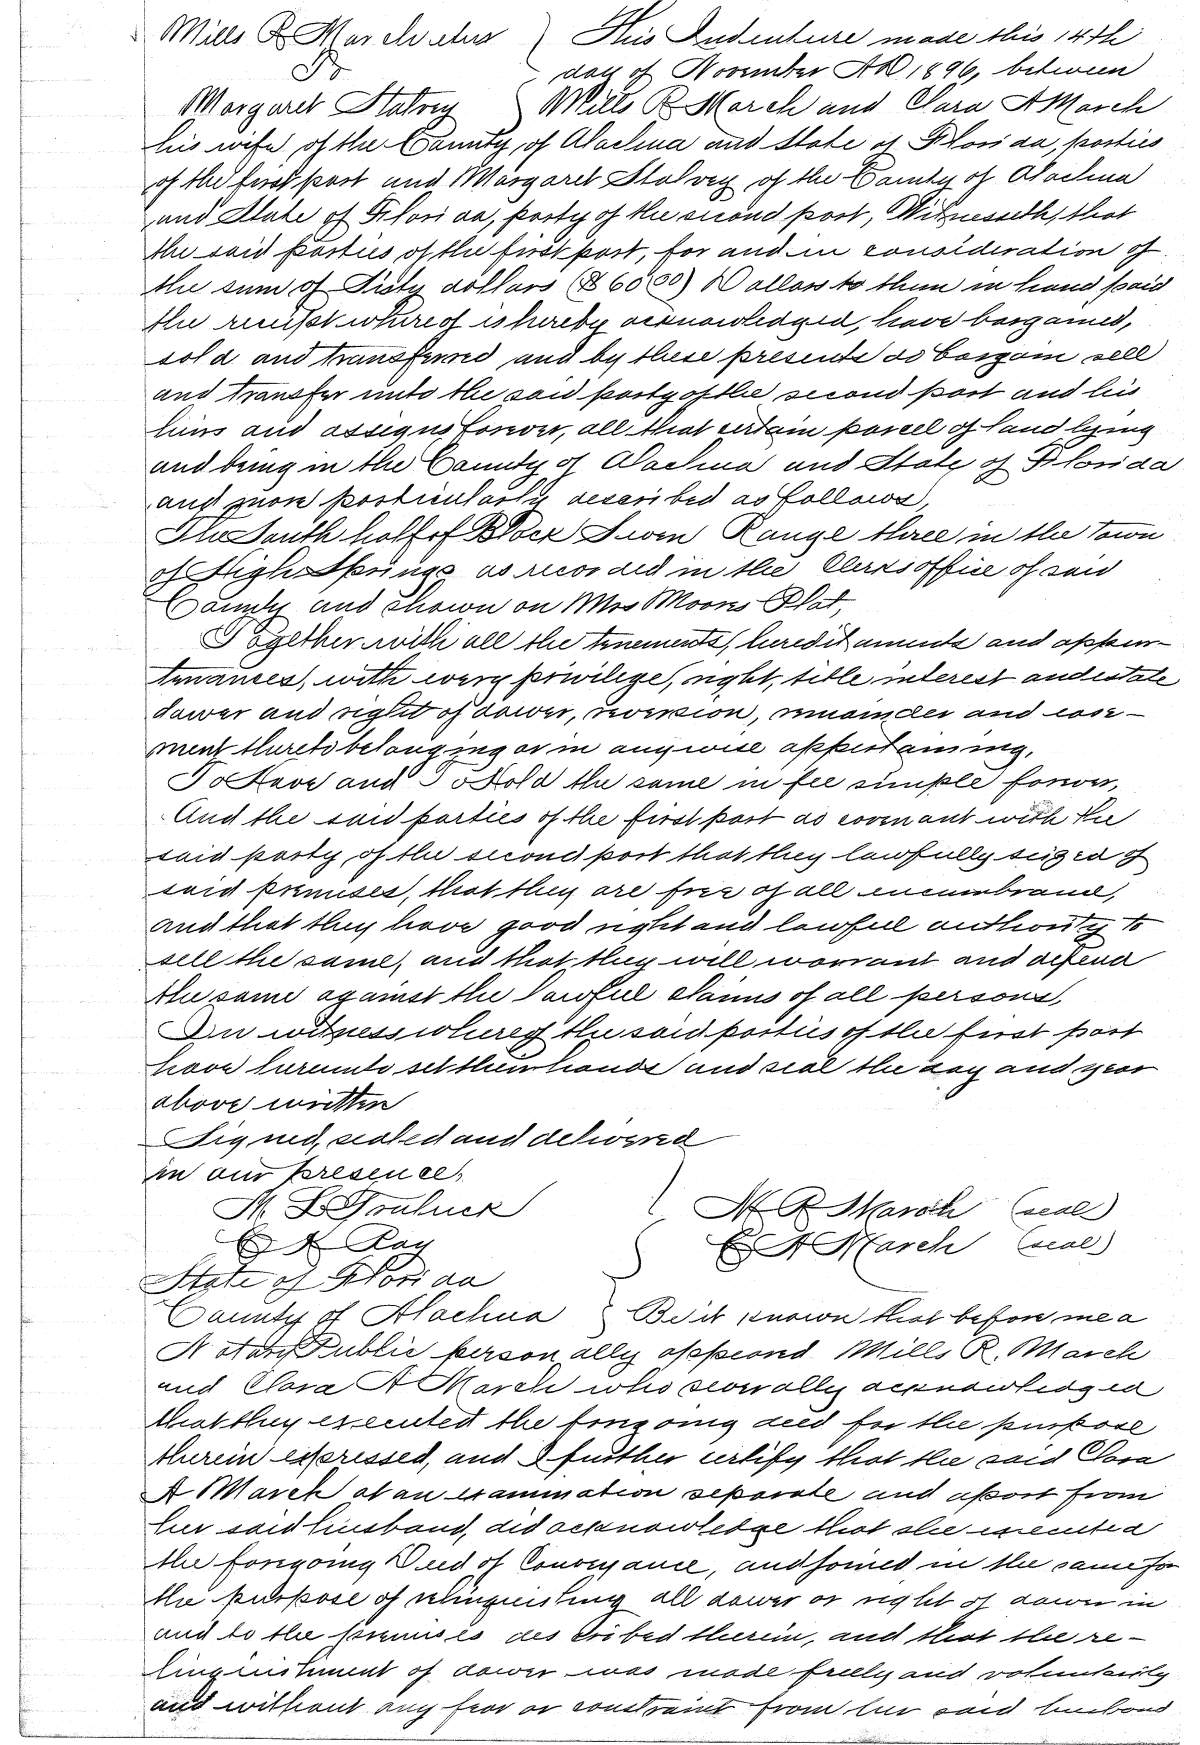 Mills R March et ux } This Indenture made this 14th
To day of November AD 1896, between
Margaret Stalvey } Mills R March and Clara A March
his wife, of the County of Alachua and State of Florida, parties
of the first part and Margaret Stalvey of the County of Alachua
and State of Florida, party of the second part, Witnesseth, that
the said parties of the first part, for and in consideration of
the sum of Sixty dollars ($60 00) Dollars to them in hand paid
the receipt whereof is hereby acknowledged, have bargained,
sold and transferred and by these presents do bargain sell
and transfer unto the said party of the second part and his
heirs and assigns forever, all that certain parcel of land lying
and being in the County of Alachua and State of Florida
and more particularly described as follows,
The South half of Block Seven Range three in the town
of High Springs as recorded in the Clerks office of said
County and shown on Mrs Moores Plat,
Together with all the tenements, hereditaments and appur-
tenances, with every privilege, right, title interest and estate
dower and right of dower, reversion, remainder and ease-
ment thereto belonging or in anywise appertaining,
To Have and To Hold the same in fee simple forever,
And the said parties of the first part do covenant with the
said party of the second part that they lawfully seized of
said premises, that they are free of all encumbrance,
and that they have good right and lawful authority to
sell the same, and that they will warrant and defend
the same against the lawful claims of all persons,
In witness whereof the said parties of the first part
have hereunto set their hands and seal the day and year
above written
Signed, sealed and delivered
in our presence,
M. L. Truluck } M R March (seal)
C A Ray C A March (seal)
State of Florida
County of Alachua } Be it known that before me a
Notary Public personally appeared Mills R. March
and Clara A March who severally acknowledged
that they executed the foregoing deed for the purpose
therein expressed, and I further certify that the said Clara
A March at an examination separate and apart from
her said husband, did acknowledge that she executed
the foregoing Deed of Conveyance, and joined in the same for
the purpose of relinquishing all dower or right of dower in
and to the premises described therein, and that the re-
linquishment of dower was made freely and voluntarily
and without any fear or constraint from her said husband